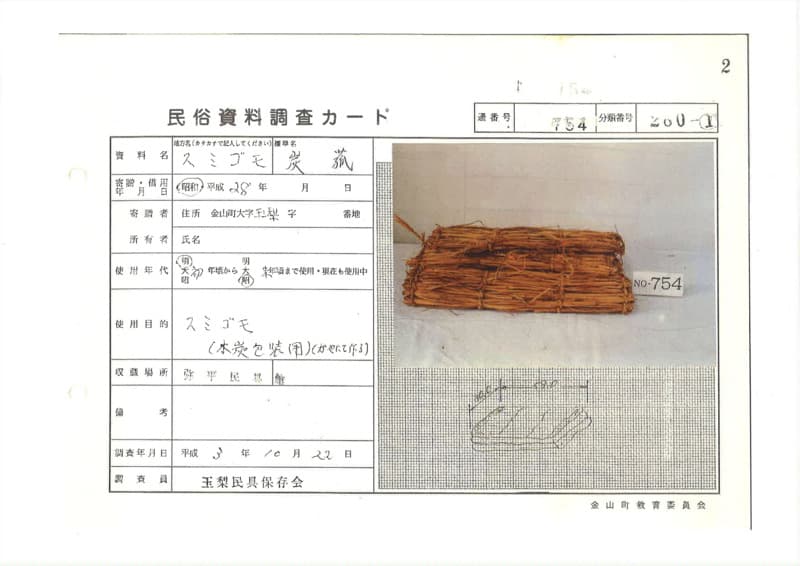 2
民俗資料調査カード
通番号 754 分類番号 260-1
資料名 地方名(カタカナで記入してください) スミゴモ 標準名 炭菰
寄贈・借用年月日 昭和 平成 28年 月 日
寄贈者 住所 金山町大字玉梨字 番地
所有者 氏名
使用年代 明大昭 初年頃から 明大昭 末年頃まで使用・現在も使用中
使用目的 スミゴモ
(木炭包装用)(かやにて作る)
収蔵場所 弥平民具館
備考
調査年月日 平成 3年 10月 22日
調査員 玉梨民具保存会
NO-754
金山町教育委員会